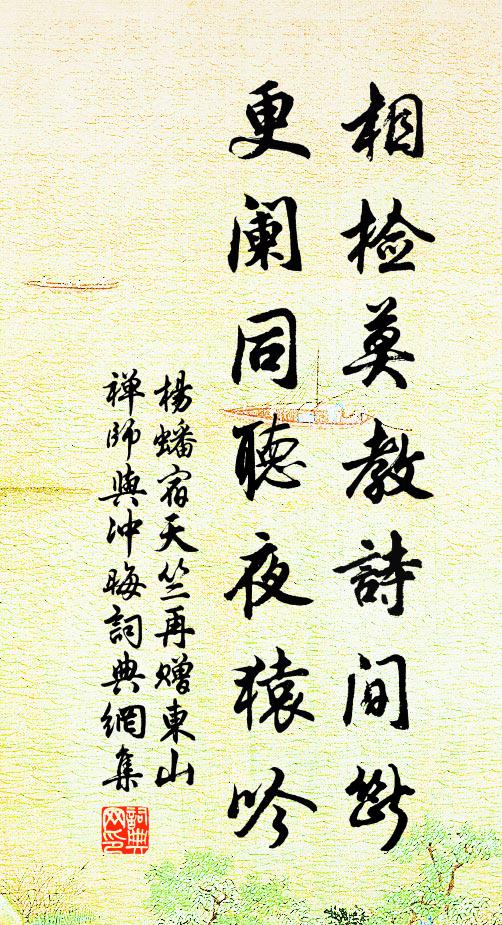 相檢莫教詩間斷
更闌同聽夜猿吟
楊蟠宿天竺再贈東山
禪師與沖晦詞典網集
詞典网印